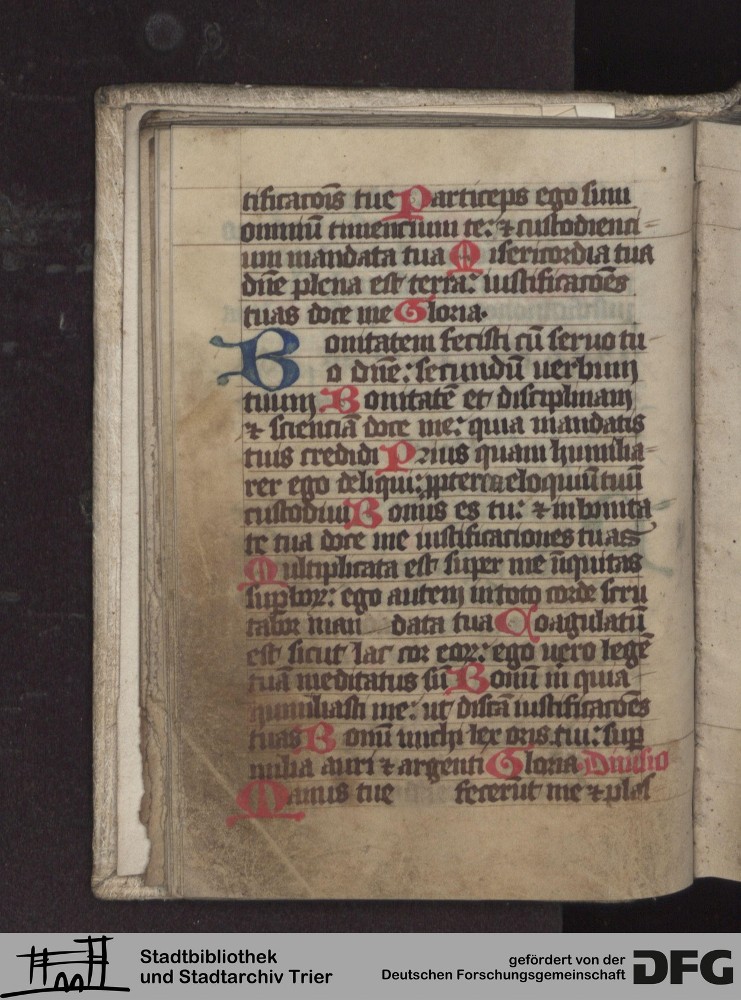 tificacōis tue Particeps ego sum
omniū timencium te: ⁊ custodienci-
um mandata tua Misericordia tua
dn̄e plena est terra: iustificacōes
tuas doce me Gloria.
Bonitatem fecisti cū seruo tu-
o dn̄e: secundū uerbum
tuum Bonitatē et disciplinam
⁊ scienciā doce me: quia mandatis
tuis credidi Prius quam humilia-
rer ego deliqui: ꝓpterea eloquiū tuū
custodiui Bonus es tu: ⁊ in bonita
te tua doce me iustificaciones tuas
Multiplicata est super me īiquitas
suꝑboꝝ: ego autem in toto corde scru
tabor man data tua Coagulatū
est sicut lac cor eoꝝ: ego uero legē
tuā meditatus sū Bonū m̄ quia
humiliasti me: ut discā iustificacōes
tuas Bonū michi lex oris tui: suꝑ
milia auri ⁊ argenti Gloria Diuisio
Manus tue fecerūt me ⁊ plas
Stadtbibliothek
und Stadtarchiv Trier
gefördert von der
Deutschen Forschungsgemeinschaft
DFG